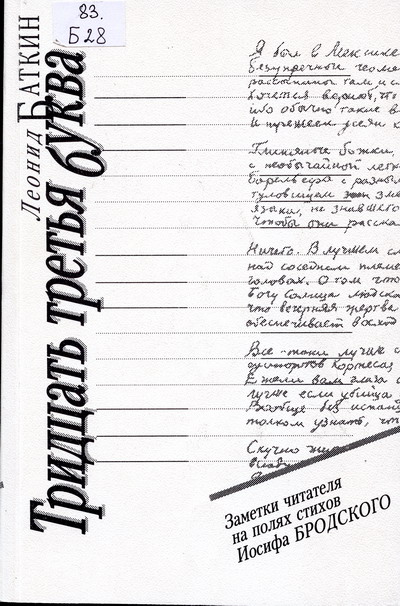 83.
Б 28
Леонид БАТКИН
Тридцать третья буква
Я был в Мексике
безупречных геоме
рассыпаны там и с
хочется верить, что
ибо обычно такие в
И пужеем усеян к
Глиняные божки,
с необычайной легк
барельефа с разным
туловищем змеи
языка, не знавшего
чтобы они расска
Ничего. В лучшем сл
над соседним племе
головах. О том что
Богу Солнца людска
что вечерняя жертва
обеспечивает восход
Все-таки лучше с
Ежели вам глаза с
лучше если убийца
Вообще без испан
толком узнать, чт
Скучно жить
Заметки читателя
на полях стихов
Иосифа БРОДСКОГО